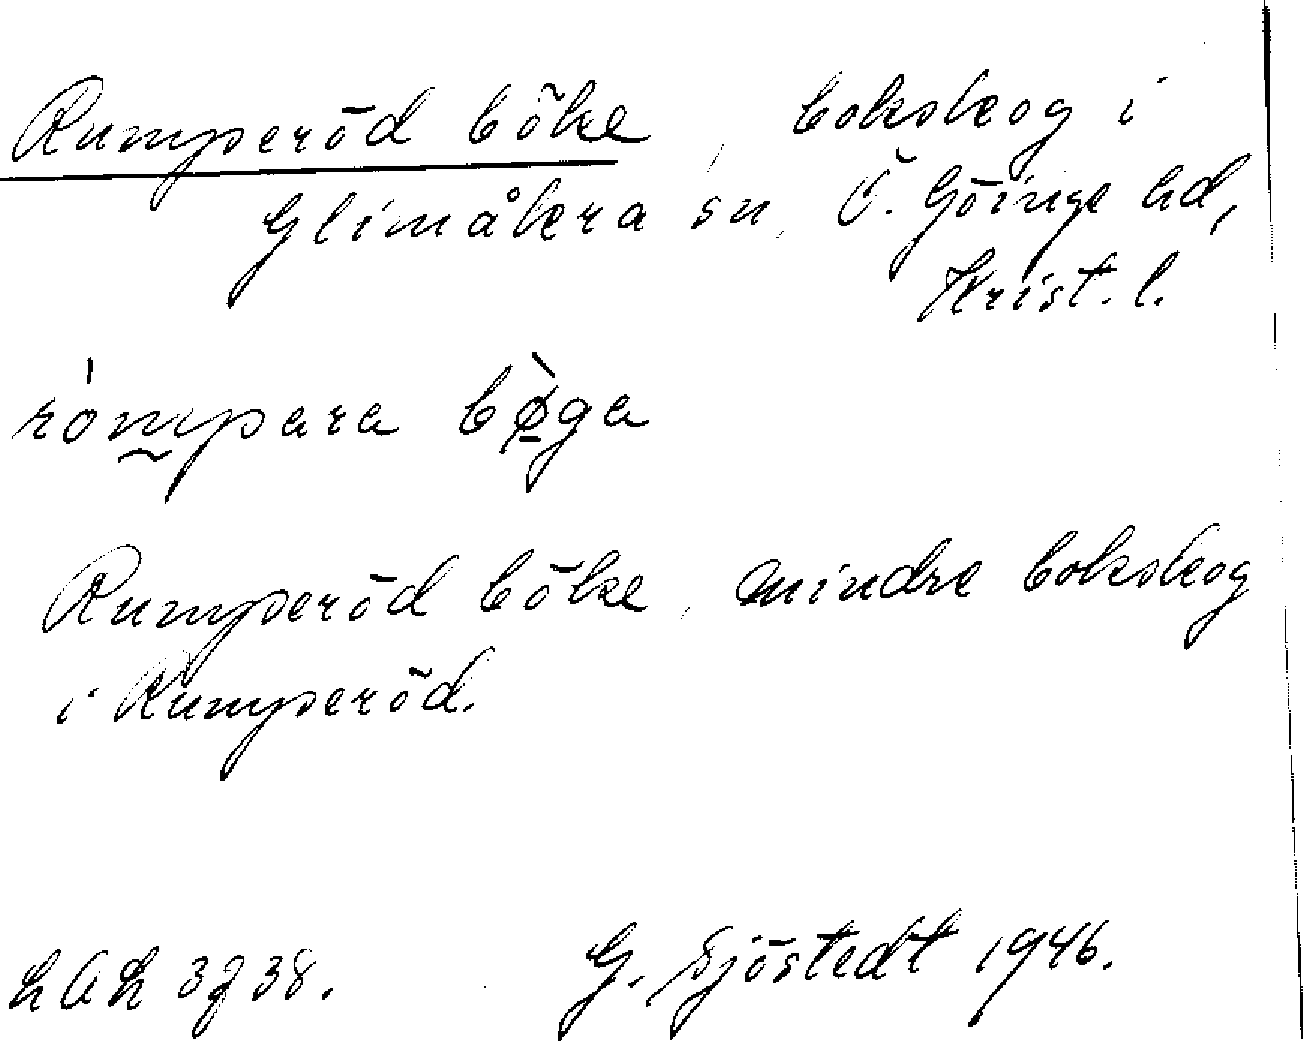 Rumperöd böke, bokskog i
Glimåkra sn, Ö. Göinge hd,
Krist. l.
ròmpara bø̀ga
Rumperöd böke, mindre bokskog
i Rumperöd.
G. Sjöstedt 1946.